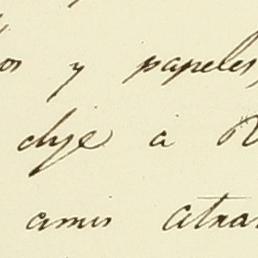 y papeles,
dije á
amis atra